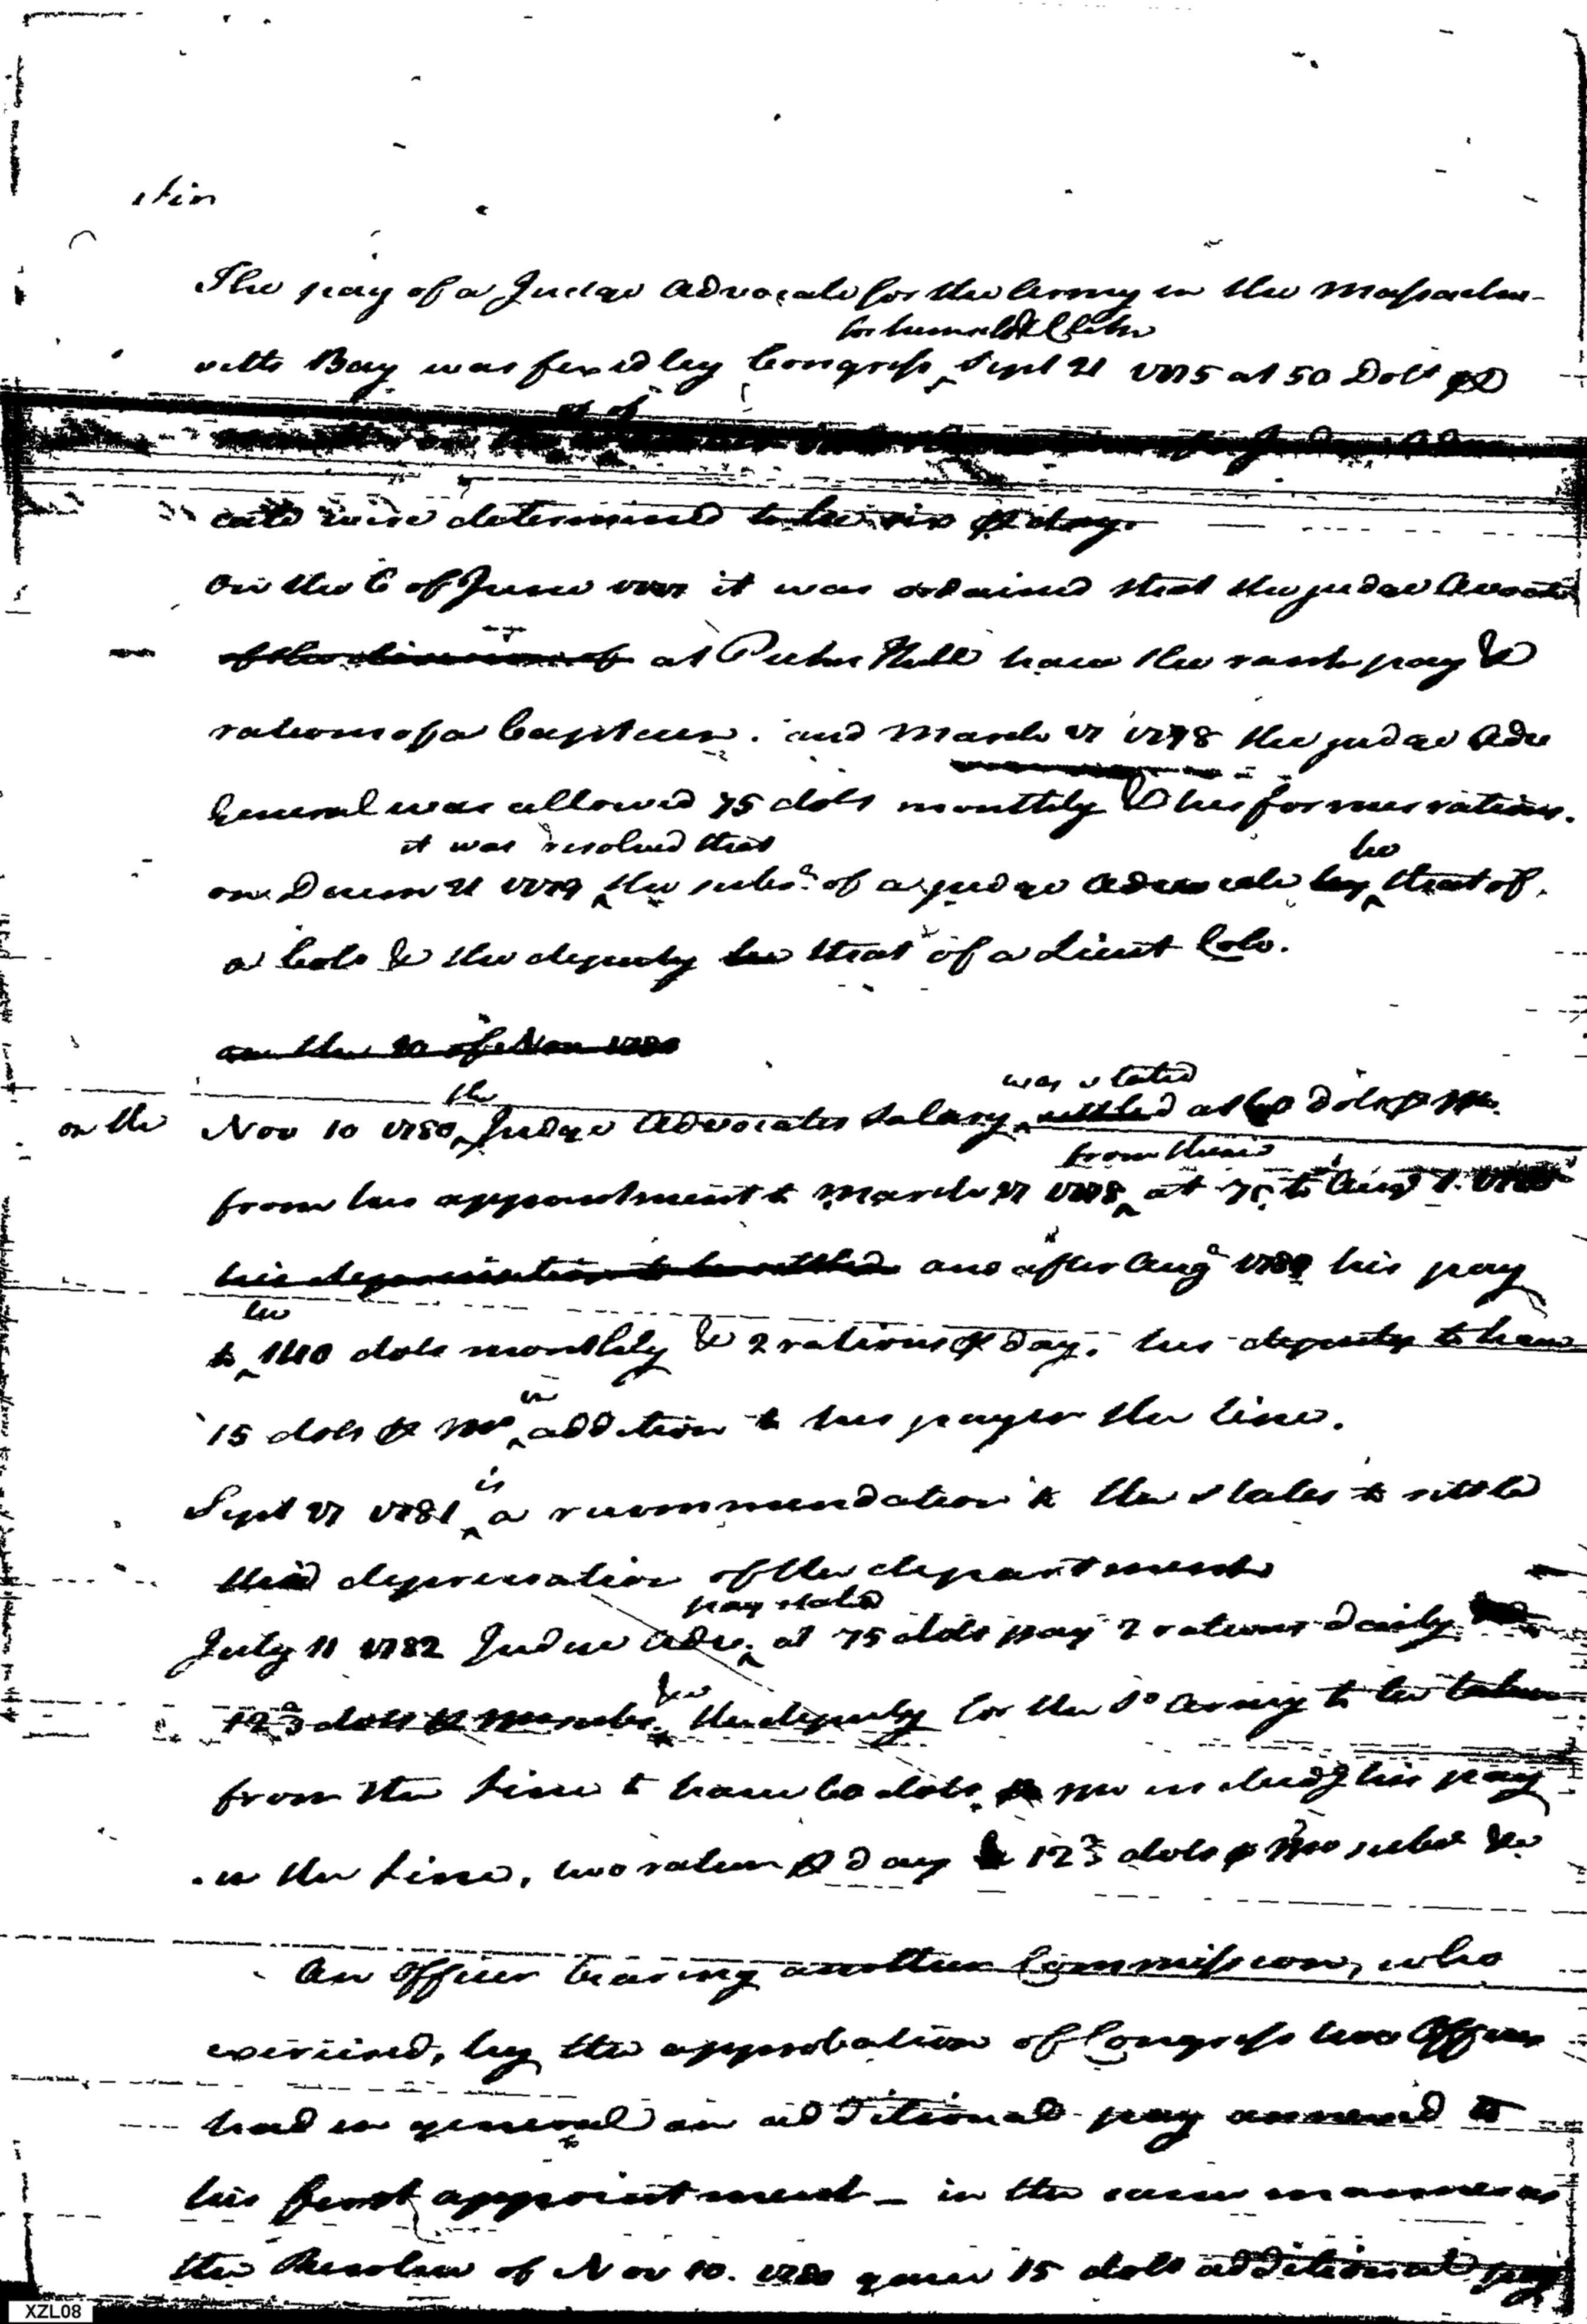 The pay of a Judge Advocate for the Army in the Massachu-
for himself & Clerk
setts Bay was fixed by Congress Sept 21 1775 at 50 Dols ₱
cate were determined to be six ₱ day.
on the 6 of June 1777 it was ordained that the judge Avocate
at Peeks Kill have the rank pay &
rations of a Captain. and March 27 1778 the judge Adv
General was allowed 75 dols monthly & his former rations.
it was resolved that
be
on Decem 21 1779 the subs. of a judge Advocate that of
a Colo & the deputy that of a Lieut Colo.
on the 10 of Nov 1780
the
was stated
on the Nov 10 1780 Judge Advocates Salary settled at dols ₱ Mo.
from thence
from his appointment to March 27 1778 at 75 to Aug 1. 1780
his depreciation to be settled and after Aug 1780 his pay
be
to dols monthly & 2 rations ₱ day. his deputy to have
in
15 dols ₱ mo addition to his pay in the line.
is
Sept 27 1781 a recommendation to the states to settle
depreciation of the department
pay stated
July 11 1782 Judge Adv. at 75 dols pay 2 rations daily
12⅔ dols ₱ subs. the deputy for the So Army to be taken
from the Line to have 60 dols ₱ mo includg his pay
in the Line, two ration ₱ day 12⅔ dols ₱ Mo subs &c
An Officer bearing another Commission, who
exercised, by the approbation of Congress two Offices
had in general an additional pay annexed to
his first appointment - in the same manner as
the Resolve of Nov 10. 1780 gave 15 dols additional pay
XZL08